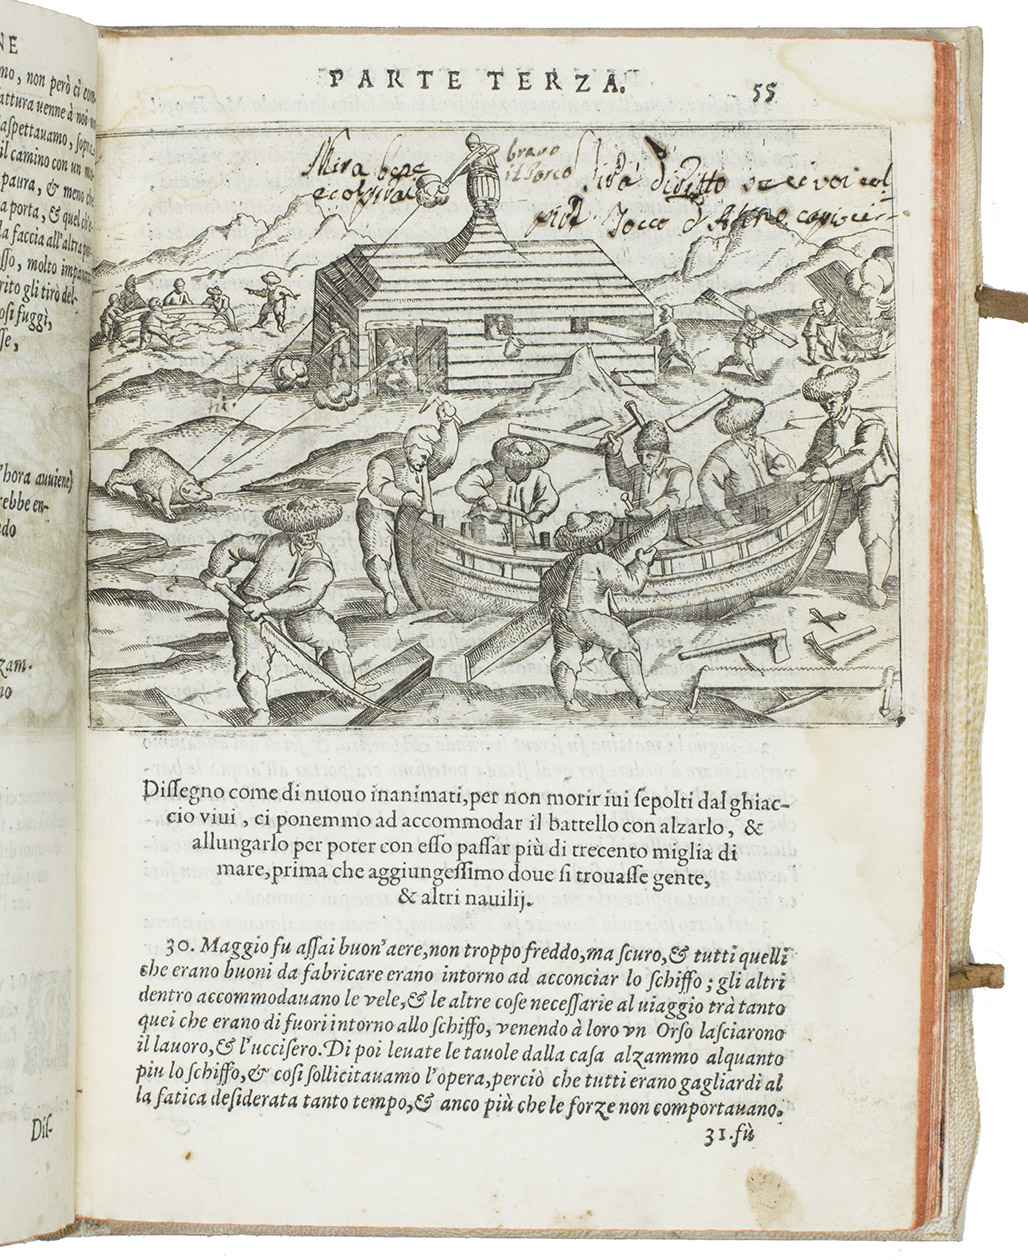 NE
mo, non però ci con-
attura uenne à noi un
aspettauamo, sopra
il camino con un mo-
paura, & meno che
a porta, & quel
la faccia all'altra
sso, molto
rito gli tirò del-
osi fuggì,
sse,
'hora auuiene)
rebbe en-
do
zam-
no
Dis-
PARTE TERZA.
55
Mira bene
e
brauo
il Porco
Dissegno come di nuouo inanimati, per non morir iui sepolti dal ghiac-
cio viui, ci ponemmo ad accommodar il battello con alzarlo, &
allungarlo per poter con esso passar più di trecento miglia di
mare, prima che aggiungessimo doue si trouasse gente,
& altri nauilij.
30. Maggio fu assai buon'aere, non troppo freddo, ma scuro, & tutti quelli
che erano buoni da fabricare erano intorno ad acconciar lo schiffo; gli altri
dentro accommodauano le vele, & le altre cose necessarie al uiaggio trà tanto
quei che erano di fuori intorno allo schiffo, venendo à loro vn Orso lasciarono
il lauoro, & l'uccisero. Di poi leuate le tauole dalla casa alzammo alquanto
piu lo schiffo, & cosi sollicitauamo l'opera, perciò che tutti erano gagliardi al
la fatica desiderata tanto tempo, & anco più che le forze non comportauano.
31. fù